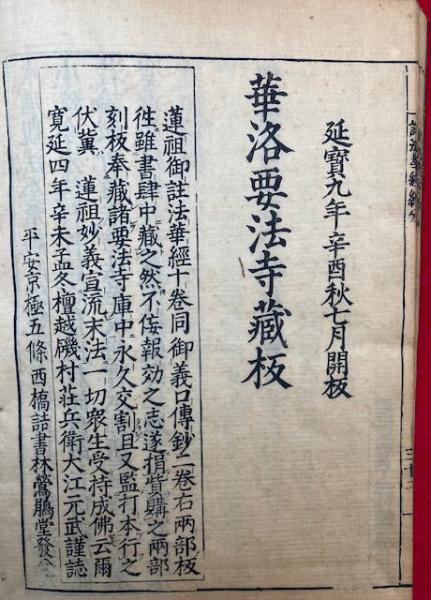 延寶九年辛酉秋七月開板
華洛要法寺藏板
蓮祖御註法華經十卷同御義口傳鈔二卷右兩部板
徃雖書肆中藏之然不侫報効之志遂捐貲購之兩部
刻板奉藏諸要法寺庫中永久交割且又監打本行之
伏冀 蓮祖妙義宣流末法一切衆生受持成佛云爾
寛延四年辛未孟冬檀越磯村莊兵衛大江元武謹誌
平安京極五條西橋詰書林鶯鵑堂發